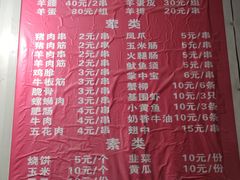 羊腰 40元/2串 羊蛋皮 30元/组
羊蛋 80元/组 羊宝 20元/串
荤类
猪肉串 2元/串 凤爪 5元/串
猪肉筋 2元/串 玉米肠 5元/串
羊肉串 2元/串 火腿肠 5元/串
羊肉筋 2元/串 鱿鱼须 5元/串
鸡胗 3元/串 掌中宝 6元/串
牛板筋 3元/串 蟹柳 10元/6条
脆骨 3元/串 基围虾 10元/3只
螺蛳肉 3元/串 小黄鱼 10元/3条
肥肠 4元/串 奶香牛油 10元/6条
牛肉 4元/串 翅中 15元/串
五花肉 4元/串
素类
烧饼 5元/个 韭菜 10元/份
玉米 10元/ 黄瓜 10元/份